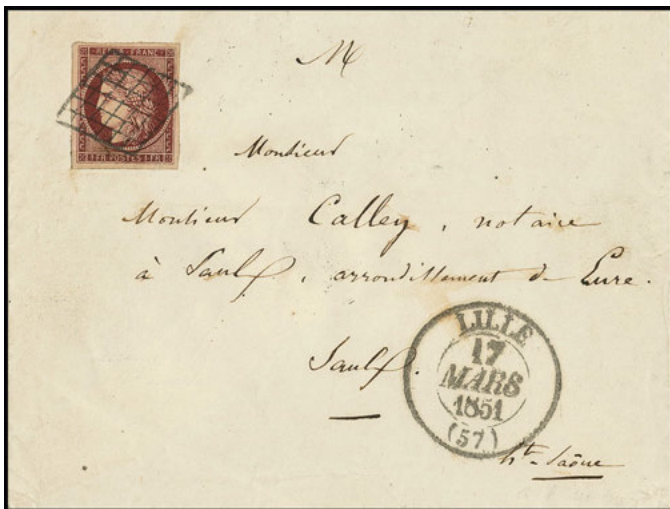 REPUB. FRANC.
1 FR. POSTES 1 FR.
M
Monsieur
Monsieur Calley, notaire
à Saulx, arrondissement de Lure.
Saulx.
LILLE
17
MARS
1851
(57)
hte-Saône